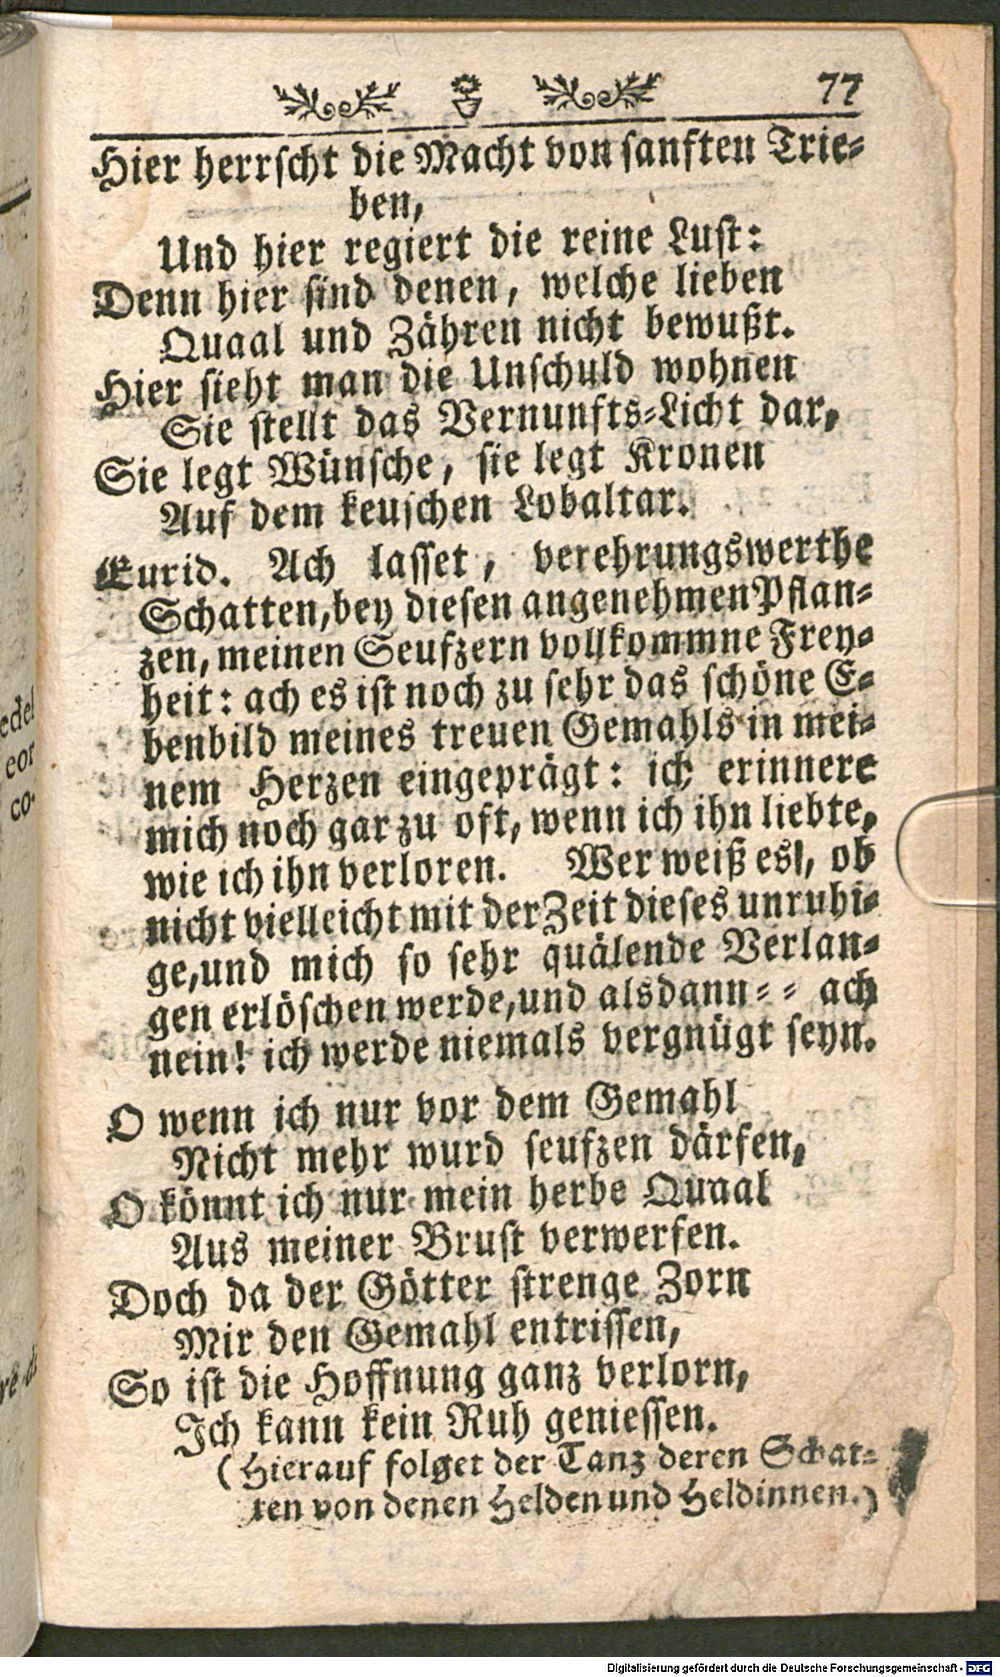 77
Hier herrscht die Macht von sanften Trie-
ben,
Und hier regiert die reine Lust:
Denn hier sind denen, welche lieben
Quaal und Zähren nicht bewußt.
Hier sieht man die Unschuld wohnen
Sie stellt das Vernunfts-Licht dar,
Sie legt Wünsche, sie legt Kronen
Auf dem keuschen Lobaltar.
Eurid. Ach lasset, verehrungswerthe
Schatten, bey diesen angenehmen Pflan-
zen, meinen Seufzern vollkommne Frey-
heit: ach es ist noch zu sehr das schöne E-
benbild meines treuen Gemahls in mei-
nem Herzen eingeprägt: ich erinnere
mich noch gar zu oft, wenn ich ihn liebte,
wie ich ihn verloren. Wer weiß es, ob
nicht vielleicht mit der Zeit dieses unruhi-
ge, und mich so sehr quälende Verlan-
gen erlöschen werde, und alsdann-- ach
nein! ich werde niemals vergnügt seyn.
O wenn ich nur vor dem Gemahl
Nicht mehr wurd seufzen därfen,
O könnt ich nur mein herbe Quaal
Aus meiner Brust verwerfen.
Doch da der Götter strenge Zorn
Mir den Gemahl entrissen,
So ist die Hoffnung ganz verlorn,
Ich kann kein Ruh geniessen.
(Hierauf folget der Tanz deren Schat-
ten von denen Helden und Heldinnen.)
edel
cor
co-
Digitalisierung gefördert durch die Deutsche Forschungsgemeinschaft - DFG